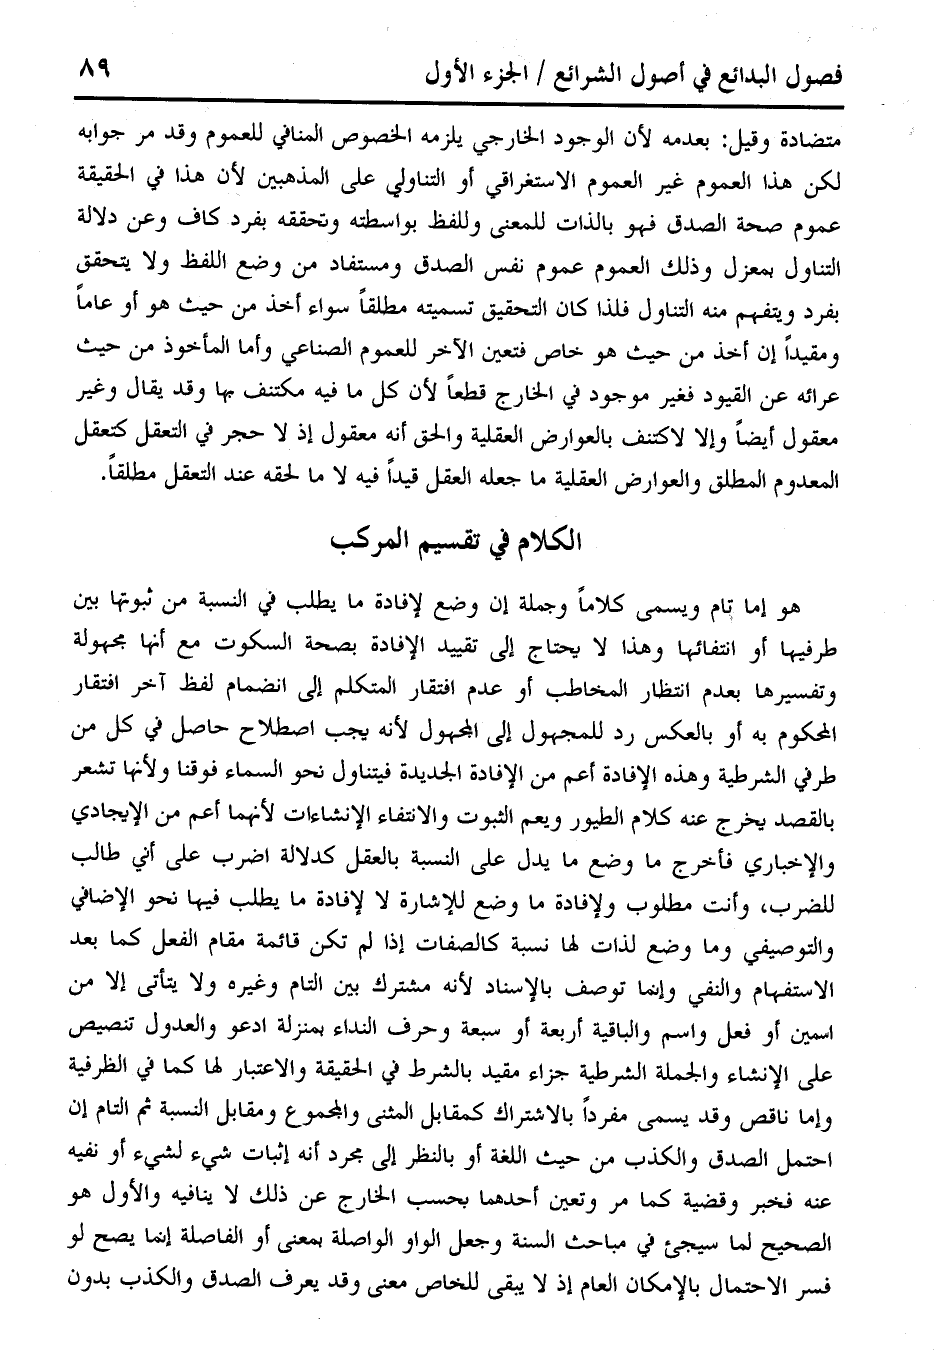 فصول البدائع في أصول الشرائع / الجزء الأول ٨٩
متضادة وقيل: بعدمه لأن الوجود الخارجي يلزمه الخصوص المنافي للعموم وقد مر جوابه
لكن هذا العموم غير العموم الاستغراقي أو التناولي على المذهبين لأن هذا في الحقيقة
عموم صحة الصدق فهو بالذات للمعنى وللفظ بواسطته وتحققه بفرد كاف وعن دلالة
التناول بمعزل وذلك العموم عموم نفس الصدق ومستفاد من وضع اللفظ ولا يتحقق
بفرد ويتفهم منه التناول فلذا كان التحقيق تسميته مطلقاً سواء أخذ من حيث هو أو عاماً
ومقيداً إن أخذ من حيث هو خاص فتعين الآخر للعموم الصناعي وأما المأخوذ من حيث
عرائه عن القيود فغير موجود في الخارج قطعاً لأن كل ما فيه مكتنف بها وقد يقال وغير
معقول أيضاً وإلا لاكتنف بالعوارض العقلية والحق أنه معقول إذ لا حجر في التعقل كتعقل
المعدوم المطلق والعوارض العقلية ما جعله العقل قيداً فيه لا ما لحقه عند التعقل مطلقاً.
الكلام في تقسيم المركب
هو إما تام ويسمى كلاماً وجملة إن وضع لإفادة ما يطلب في النسبة من ثبوتها بين
طرفيها أو انتفائها وهذا لا يحتاج إلى تقييد الإفادة بصحة السكوت مع أنها مجهولة
وتفسيرها بعدم انتظار المخاطب أو عدم افتقار المتكلم إلى انضمام لفظ آخر افتقار
المحكوم به أو بالعكس رد للمجهول إلى المجهول لأنه يجب اصطلاح حاصل في كل من
طرفي الشرطية وهذه الإفادة أعم من الإفادة الجديدة فيتناول نحو السماء فوقنا ولأنها تشعر
بالقصد يخرج عنه كلام الطيور ويعم الثبوت والانتفاء الإنشاءات لأنهما أعم من الإيجادي
والإخباري فأخرج ما وضع ما يدل على النسبة بالعقل كدلالة اضرب على أني طالب
للضرب، وأنت مطلوب ولإفادة ما وضع للإشارة لا لإفادة ما يطلب فيها نحو الإضافي
والتوصيفي وما وضع لذات لها نسبة كالصفات إذا لم تكن قائمة مقام الفعل كما بعد
الاستفهام والنفي وإنما توصف بالإسناد لأنه مشترك بين التام وغيره ولا يتأتى إلا من
اسمين أو فعل واسم والباقية أربعة أو سبعة وحرف النداء بمنزلة ادعو والعدول تنصيص
على الإنشاء والجملة الشرطية جزاء مقيد بالشرط في الحقيقة والاعتبار لها كما في الظرفية
وإما ناقص وقد يسمى مفرداً بالاشتراك كمقابل المثنى والمجموع ومقابل النسبة ثم التام إن
احتمل الصدق والكذب من حيث اللغة أو بالنظر إلى مجرد أنه إثبات شيء لشيء أو نفيه
عنه فخبر وقضية كما مر وتعين أحدهما بحسب الخارج عن ذلك لا ينافيه والأول هو
الصحيح لما سيجئ في مباحث السنة وجعل الواو الواصلة بمعنى أو الفاصلة إنما يصح لو
فسر الاحتمال بالإمكان العام إذ لا يبقى للخاص معنى وقد يعرف الصدق والكذب بدون